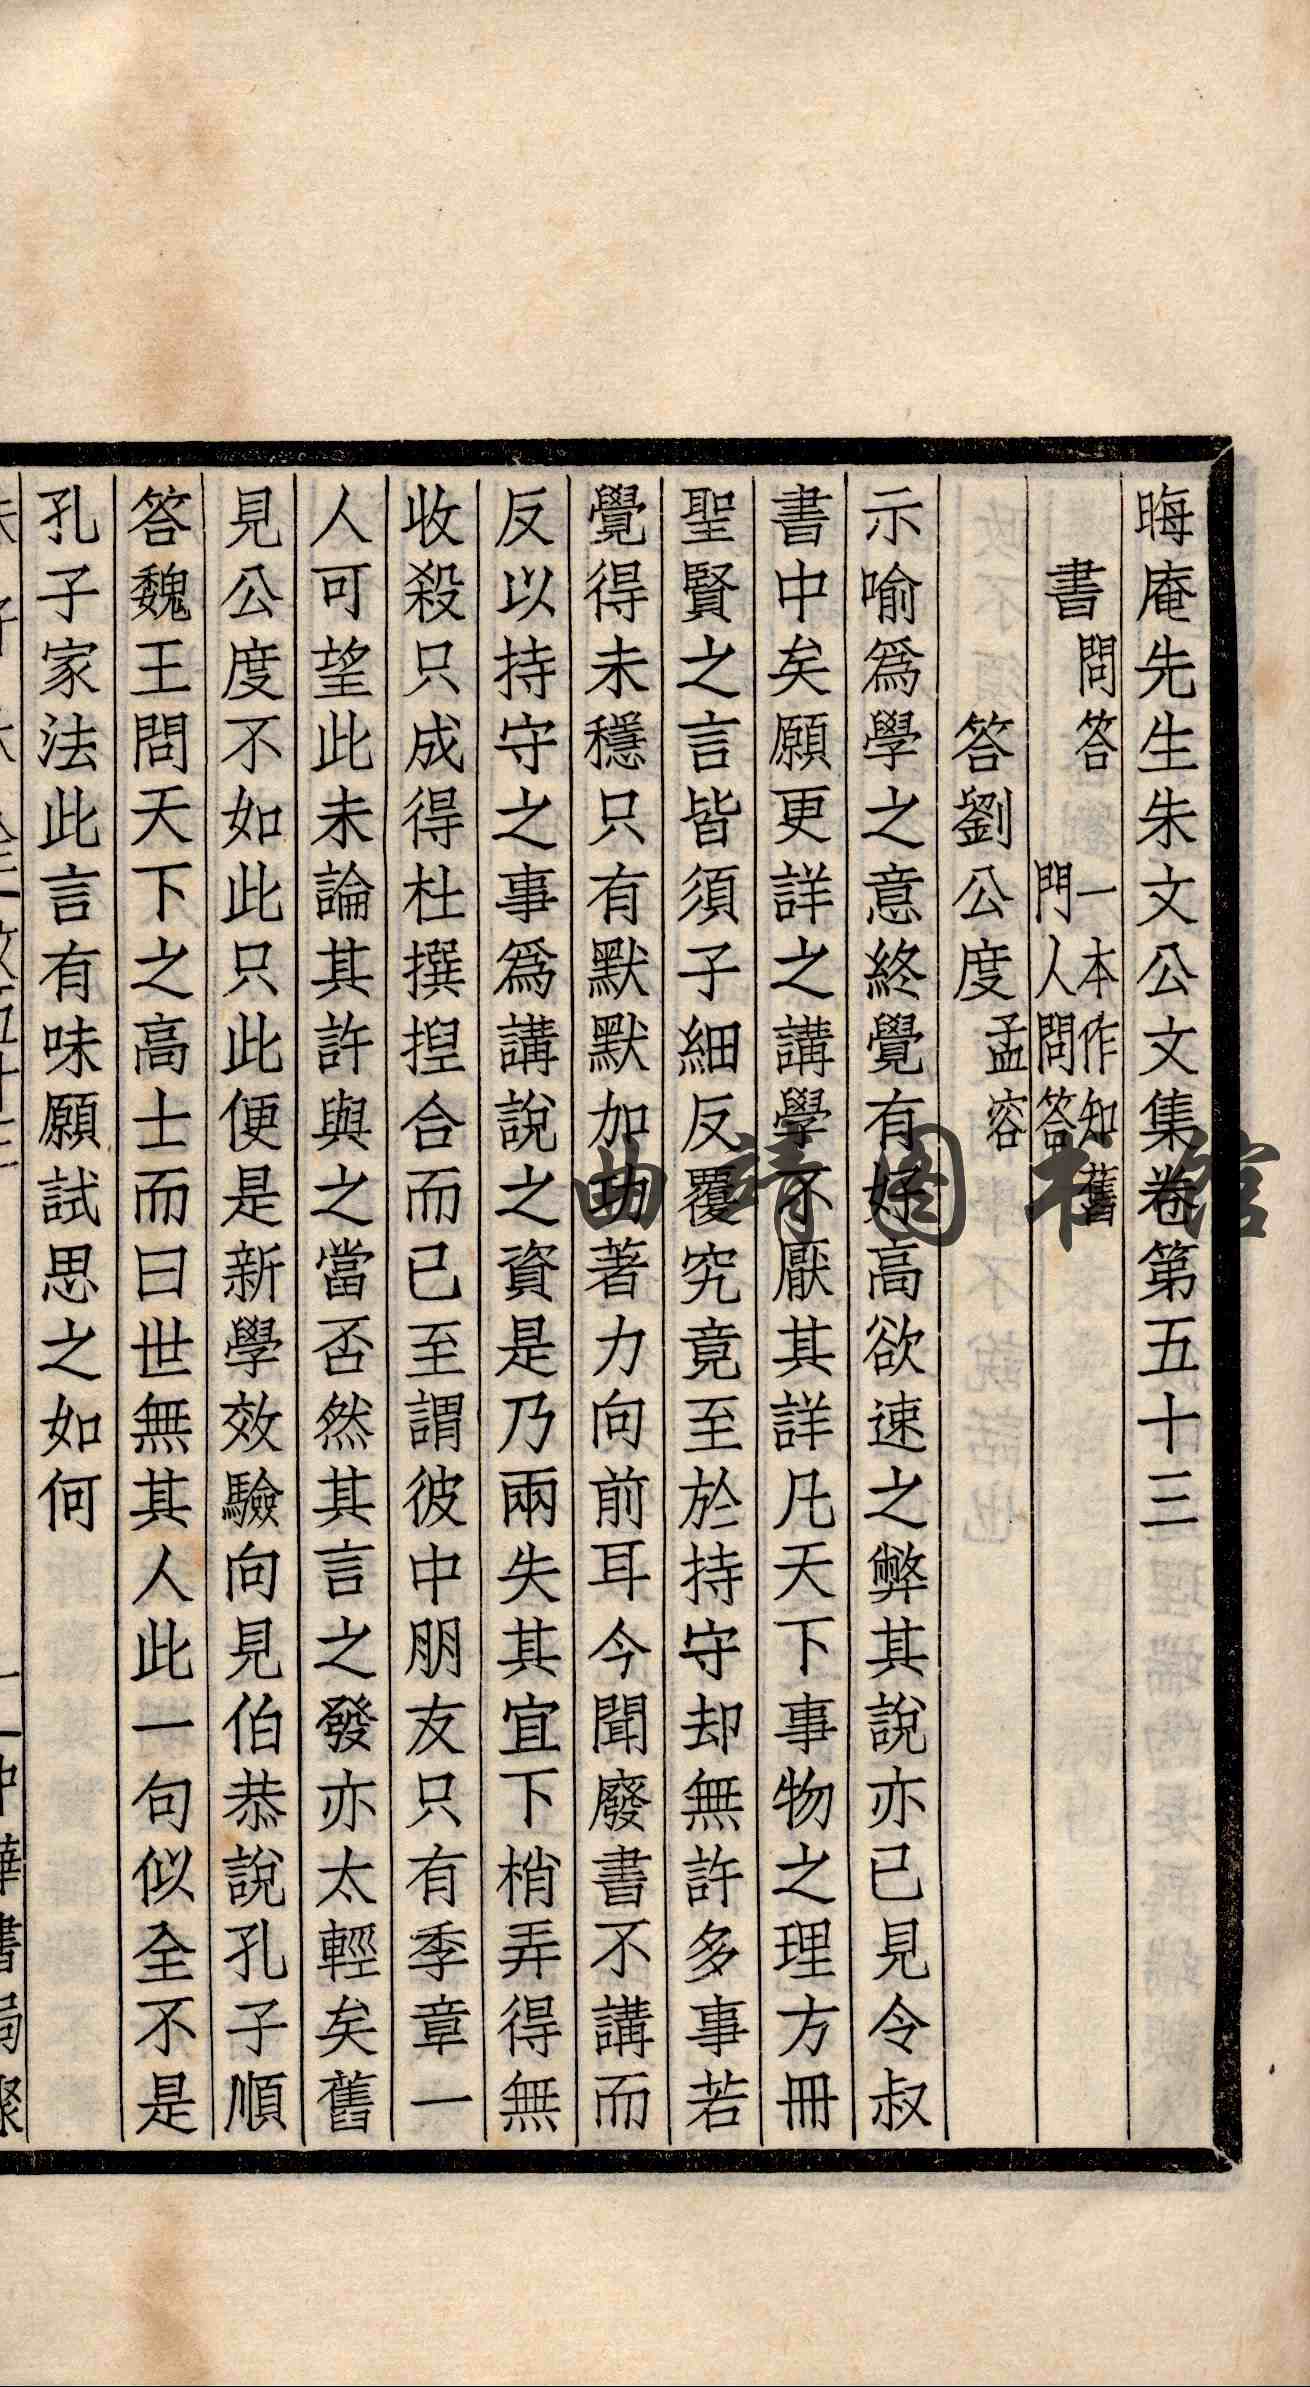 晦庵先生朱文公文集卷第五十三
書 問答 一本作知舊
門人問答
答劉公度 孟容
示喻爲學之意終覺有好高欲速之弊其說亦已見令叔
書中矣願更詳之講學不厭其詳凡天下事物之理方冊
聖賢之言皆須子細反覆究竟至於持守却無許多事若
覺得未穩只有默默加功著力向前耳今聞廢書不講而
反以持守之事爲講說之資是乃兩失其宜下梢弄得無
收殺只成得杜撰揑合而已至謂彼中朋友只有季章一
人可望此未論其許與之當否然其言之發亦太輕矣舊
見公度不如此只此便是新學效驗向見伯恭說孔子順
答魏王問天下之高士而曰世無其人此一句似全不是
孔子家法此言有味願試思之如何
曲靖图书馆